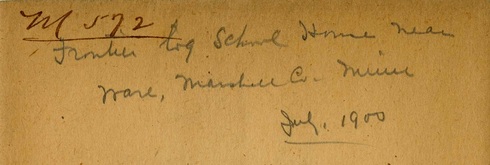 M 572
Frontier Log School House near
Ware, Marshall Co. Minn
July, 1900